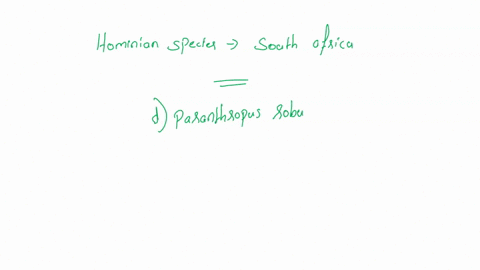 Hominian species → South africa
d) paranthropus robu